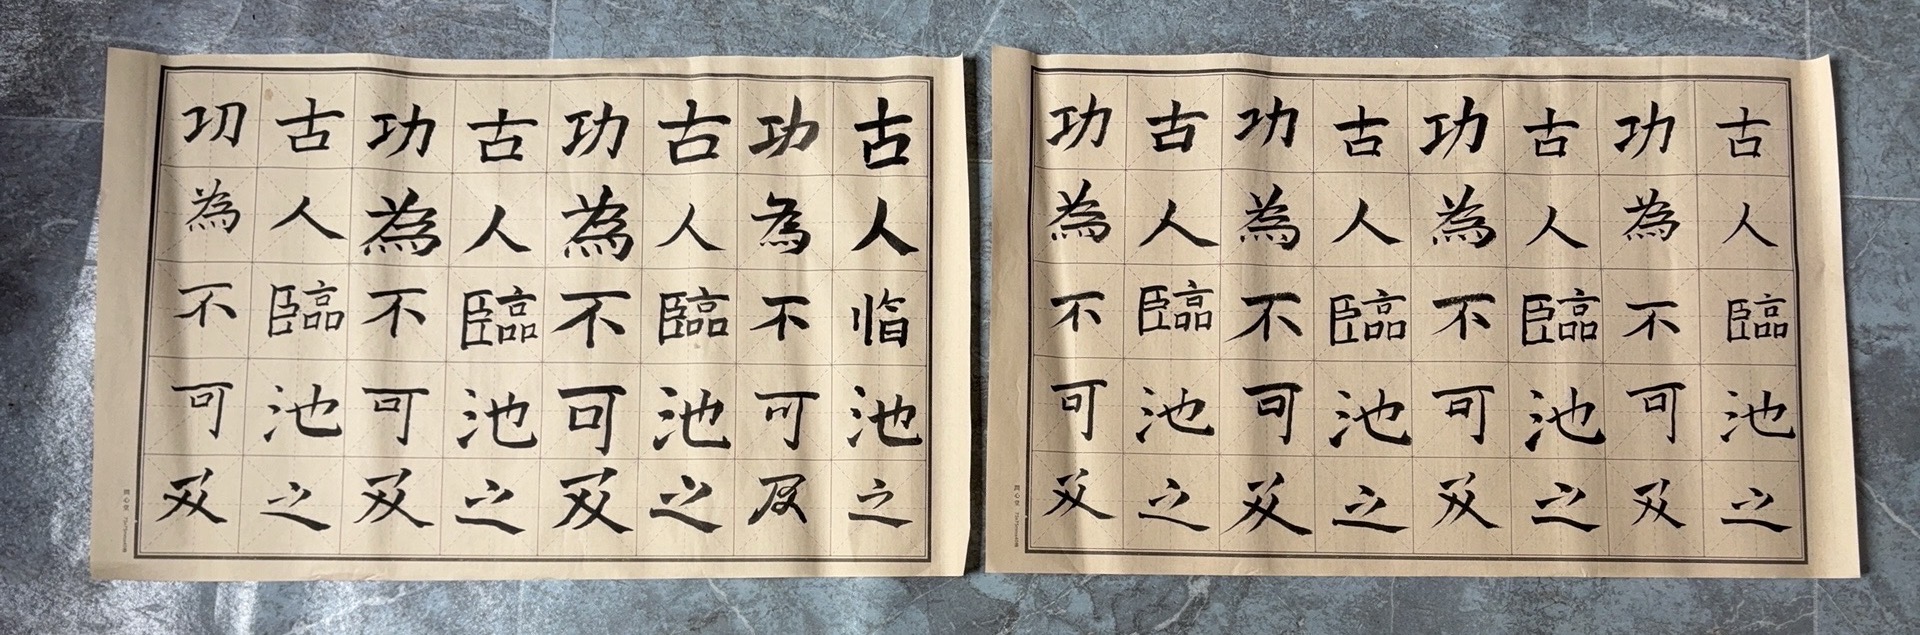 古人臨池之
功為不可及
古人臨池之
功為不可及
古人臨池之
功為不可及
古人臨池之
功為不可及
問心堂
古人临池之
功為不可及
古人臨池之
功為不可及
古人臨池之
功為不可及
古人臨池之
功為不可及
問心堂